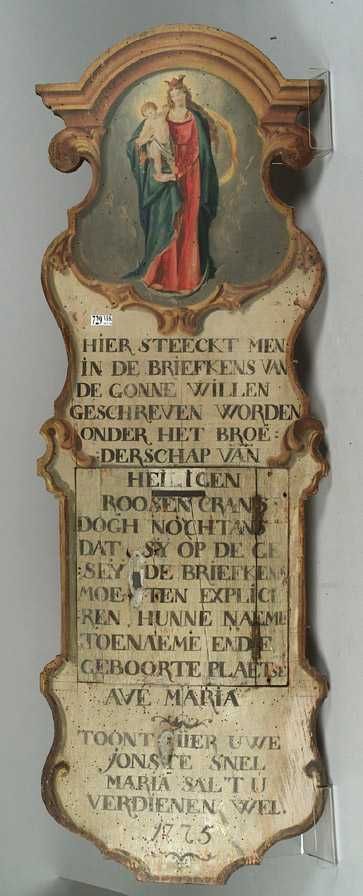 729 VH8
HIER STEECKT MEN
IN DE BRIEFKENS VAN
DE GONNE WILLEN
GESCHREVEN WORDEN
ONDER HET BROE:
:DERSCHAP VAN
HEILIGEN
ROOSEN CRANS
DOGH NOCHTANS
DAT SY OP DE GE
:SEY DE BRIEFKENS
MOETEN EXPLICE
:REN HUNNE NAEME
TOENAEME ENDE
GEBOORTE PLAETSE
AVE MARIA
TOONT HIER UWE
JONSTE SNEL
MARIA SAL'T U
VERDIENEN WEL.
1775